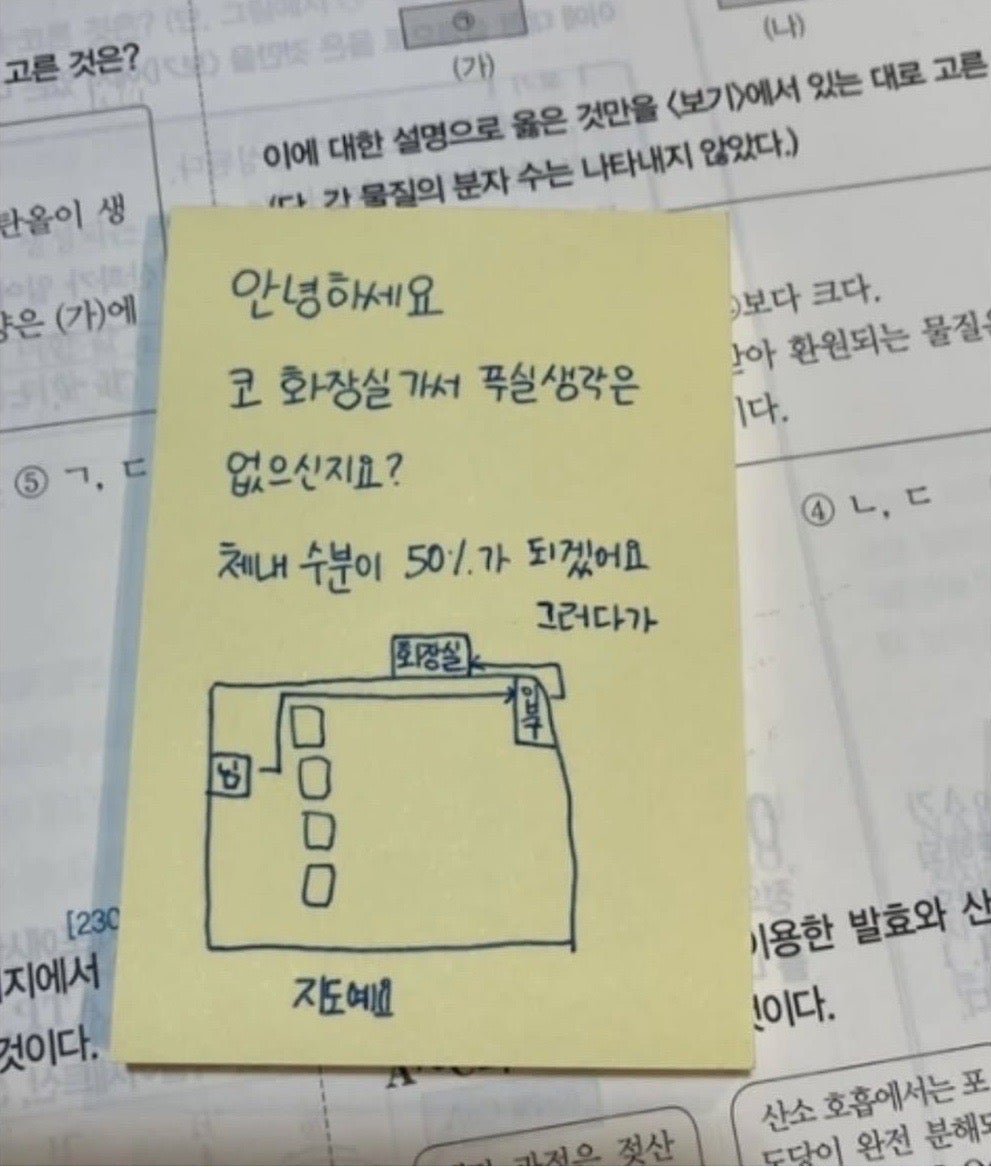 고른 것은?
㉠
(가)
(나)
이에 대한 설명으로 옳은 것만을 〈보기〉에서 있는 대로 고른
(단, 각 물질의 분자 수는 나타내지 않았다.)
탄올이 생
양은 (가)에
보다 크다.
환원되는 물질은
이다.
⑤ ㄱ, ㄷ
④ ㄴ, ㄷ
안녕하세요
코 화장실가서 푸실생각은
없으신지요?
체내 수분이 50%가 되겠어요
그러다가
화장실
입구
님
지도예요
[230
지에서
것이다.
이용한 발효와 산
것이다.
산소 호흡에서는 포
도당이 완전 분해되
과정은 젖산